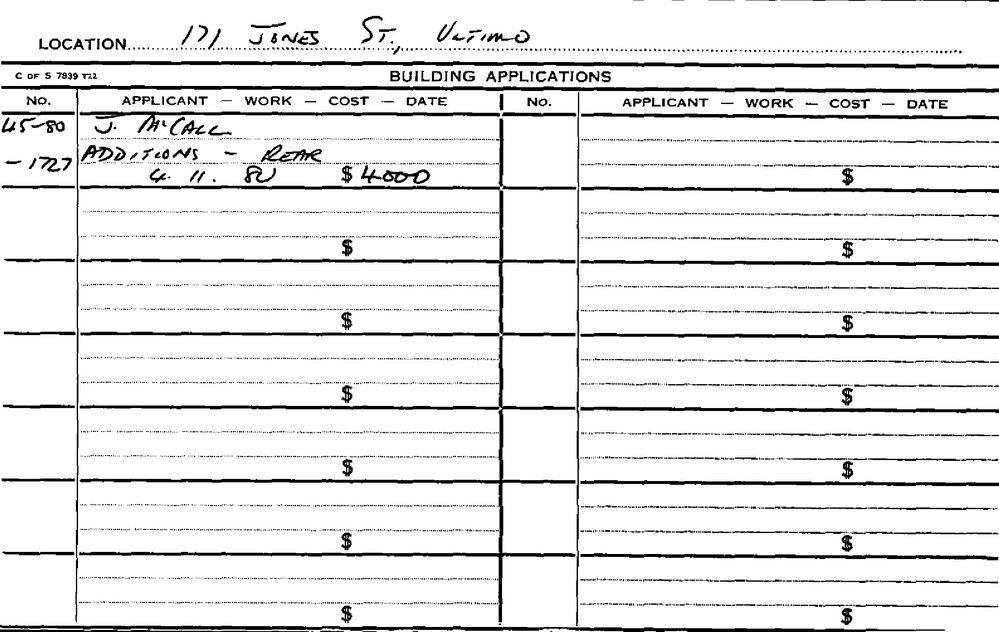 LOCATION 171 JONES ST., ULTIMO
C OF S 7839 T22
BUILDING APPLICATIONS
No. APPLICANT — WORK — COST — DATE No. APPLICANT — WORK — COST — DATE
45-80 J. McCALL
-1727 ADDITIONS - REAR
4. 11. 80 $ 4000 $
$ $
$ $
$ $
$ $
$ $
$ $